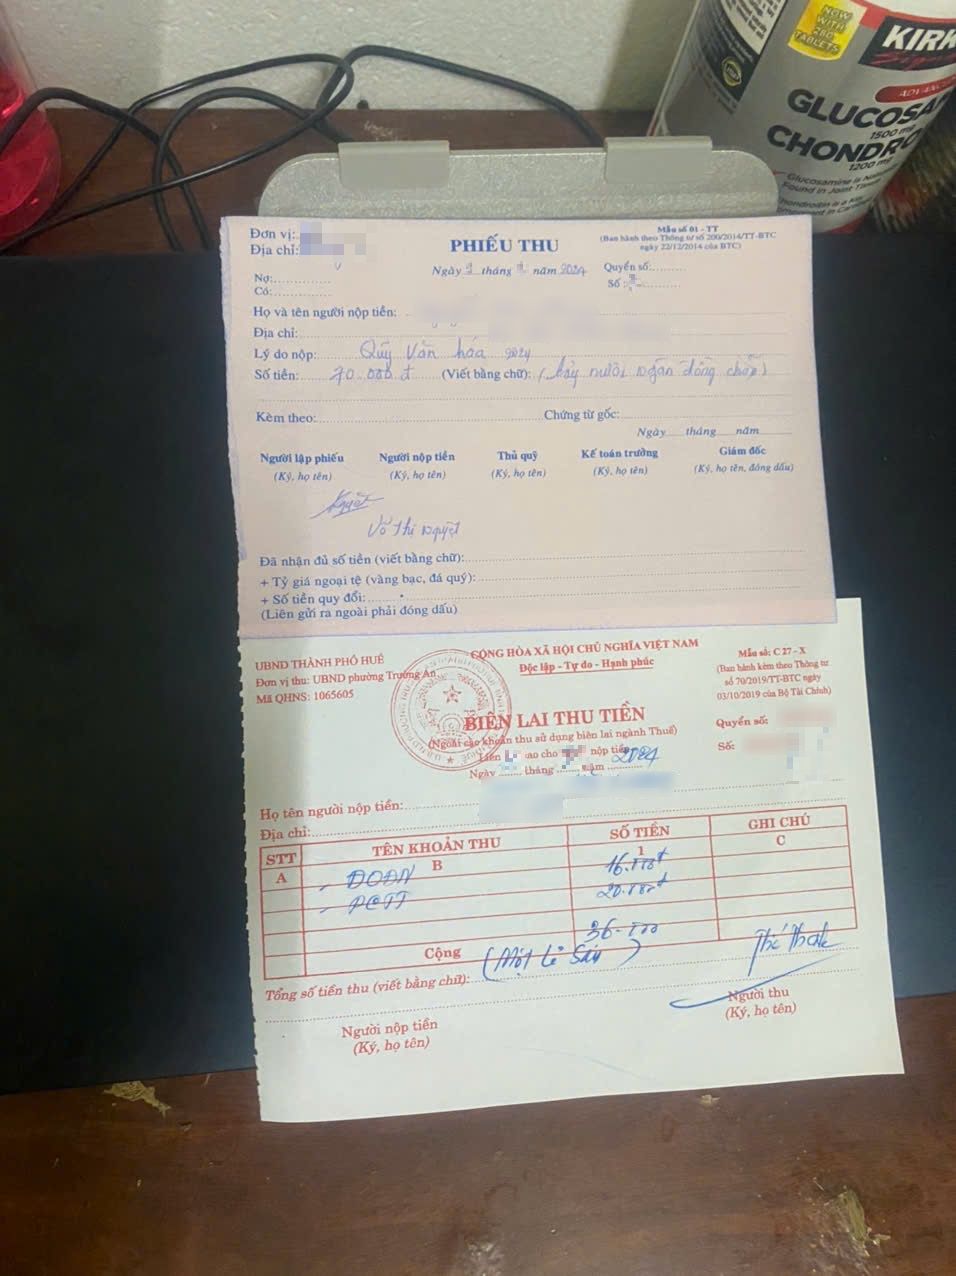 NOW
WITH
280
TABLETS
KIRK
GLUCOSA
1500 mg
CHONDRO
1200 mg
Glucosamine is
Found in Joint
Đơn vị:
Địa chỉ:
PHIẾU THU
Mẫu số 01 - TT
(Ban hành theo Thông tư số 200/2014/TT-BTC
ngày 22/12/2014 của BTC)
Ngày tháng năm 2024
Quyển số:
Số :
Nợ:
Có:
Họ và tên người nộp tiền:
Địa chỉ:
Lý do nộp: Quỹ Văn hóa 2024
Số tiền: 70.000 đ (Viết bằng chữ): (Bảy mươi ngàn đồng chẵn)
Kèm theo: Chứng từ gốc:
Ngày tháng năm
Người lập phiếu Người nộp tiền Thủ quỹ Kế toán trưởng Giám đốc
(Ký, họ tên) (Ký, họ tên) (Ký, họ tên) (Ký, họ tên) (Ký, họ tên, đóng dấu)
Nguyệt
Võ Thị Nguyệt
Đã nhận đủ số tiền (viết bằng chữ):
+ Tỷ giá ngoại tệ (vàng bạc, đá quý):
+ Số tiền quy đổi:
(Liên gửi ra ngoài phải đóng dấu)
UBND THÀNH PHỐ HUẾ
Đơn vị thu: UBND phường Trường An
Mã QHNS: 1065605
CỘNG HÒA XÃ HỘI CHỦ NGHĨA VIỆT NAM
Độc lập - Tự do - Hạnh phúc
Mẫu số: C 27 - X
(Ban hành kèm theo Thông tư
số 70/2019/TT-BTC ngày
03/10/2019 của Bộ Tài Chính)
BIÊN LAI THU TIỀN
(Ngoài các khoản thu sử dụng biên lai ngành Thuế)
Liên giao cho nộp tiền
Ngày tháng năm 2024
Quyển số:
Số:
Họ tên người nộp tiền:
Địa chỉ:
STT TÊN KHOẢN THU SỐ TIỀN GHI CHÚ
A B 1 C
- ĐOĐN 16.000đ
- PCTT 20.000đ
36.000
Cộng
Tổng số tiền thu (viết bằng chữ):
Người nộp tiền
(Ký, họ tên)
Người thu
(Ký, họ tên)